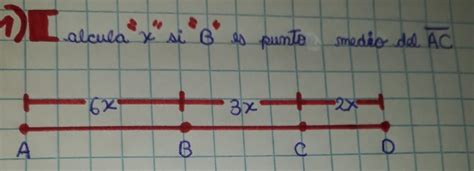 1) Calcula "x" si "B" es punto medio del AC
6x 3x 2x
A B C D